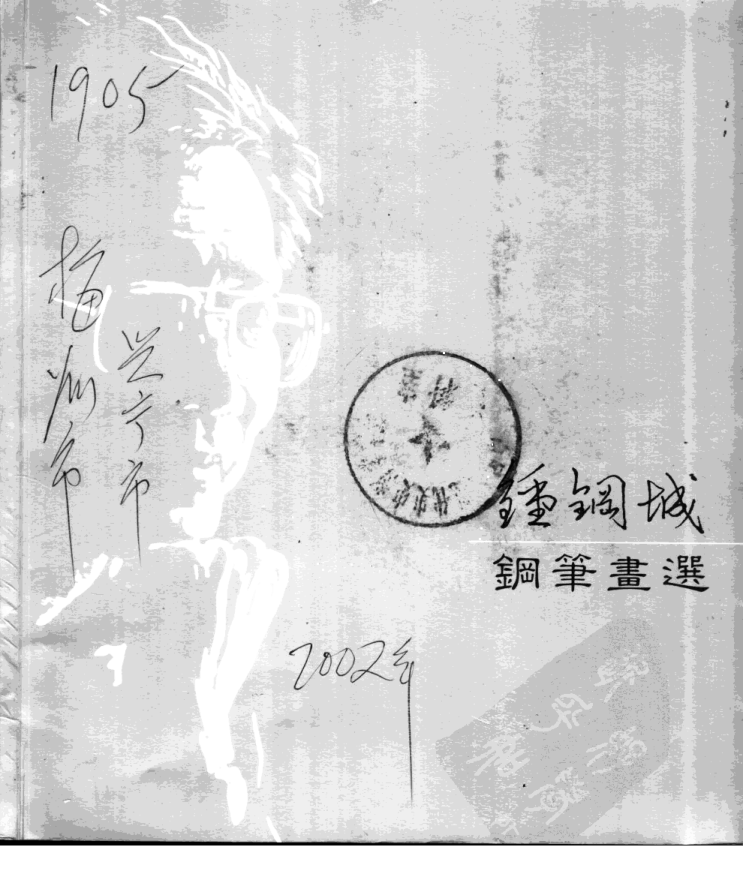 1905
梅州市
兴宁市
鍾鋼城
鋼筆畫選
2002年